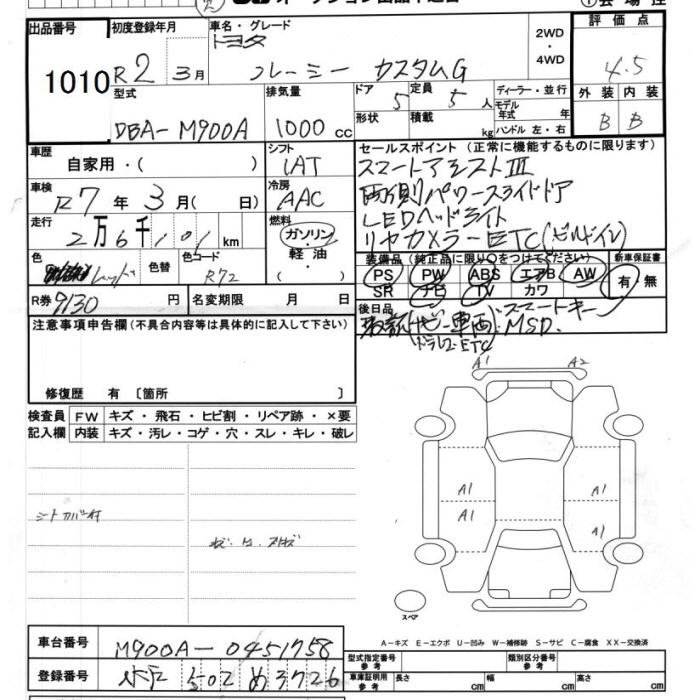 出品番号 1010
初度登録年月 R2 3月
車名・グレード
トヨタ
ルーミー カスタムG
2WD
・
4WD
評価点
4.5
外装 内装
B B
型式 DBA-M900A
排気量 1000 cc
ドア 5
定員 5人
形状
積載 kg
ディーラー・並行
モデル年式 年
ハンドル 左・右
車歴 自家用・( )
シフト IAT
車検 R7年3月( 日)
冷房 AAC
走行 2万6千101km
燃料 ガソリン・軽油・
色 レッド
色替
色コード R72
R券 9130円
名変期限 月 日
セールスポイント(正常に機能するものに限ります)
スマートアシストIII
両側パワースライドドア
LEDヘッドライト
リヤカメラーETC(ビルドイン)
装備品(純正品に限り○をつけてください)
PS PW ABS エアB AW
SR ナビ TV カワ
新車保証書
有・無
後日品
取説(ナビー車両)・スマートキー
ドラレコ・ETC MSD.
注意事項申告欄(不具合内容等は具体的に記入して下さい)
修復歴 有 〔箇所 〕
検査員記入欄
FW キズ・飛石・ヒビ割・リペア跡・×要
内装 キズ・汚レ・コゲ・穴・スレ・キレ・破レ
A1 A2
A1 A1
A1 A1
スペア
A-キズ E-エクボ U-凹み W-補修跡 S-サビ C-腐食 XX-交換済
車台番号 M900A-0451758
登録番号 水戸 502 め 3726
型式指定番号 参考
類別区分番号 参考
車庫証明用 参考 長さ cm 幅 cm 高さ cm